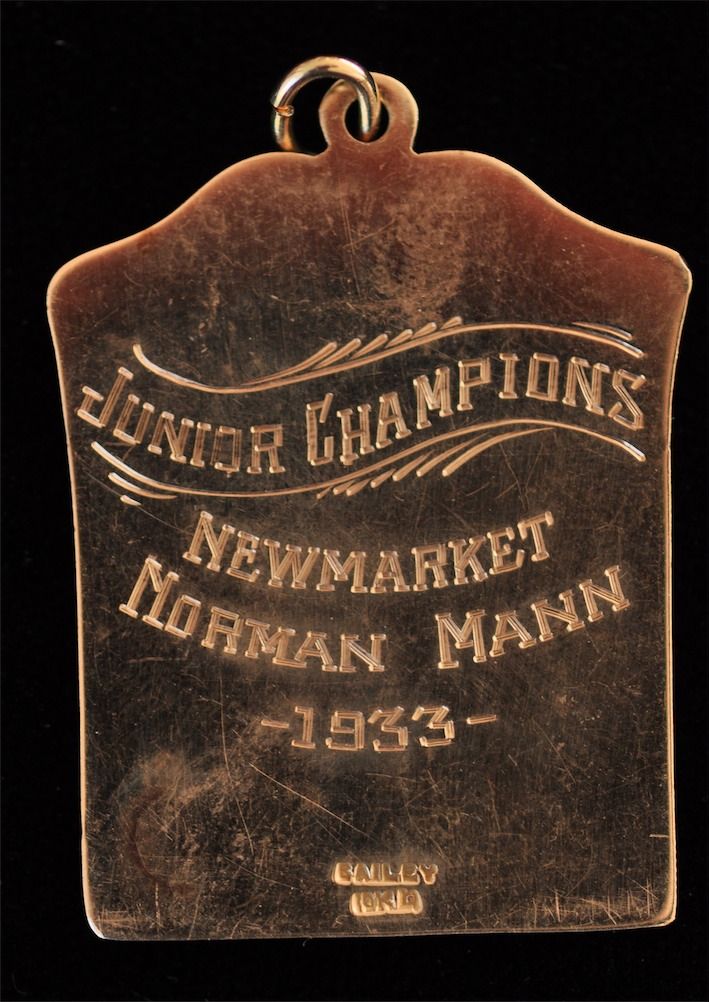 JUNIOR CHAMPIONS
NEWMARKET
NORMAN MANN
-1933-
BAILEY